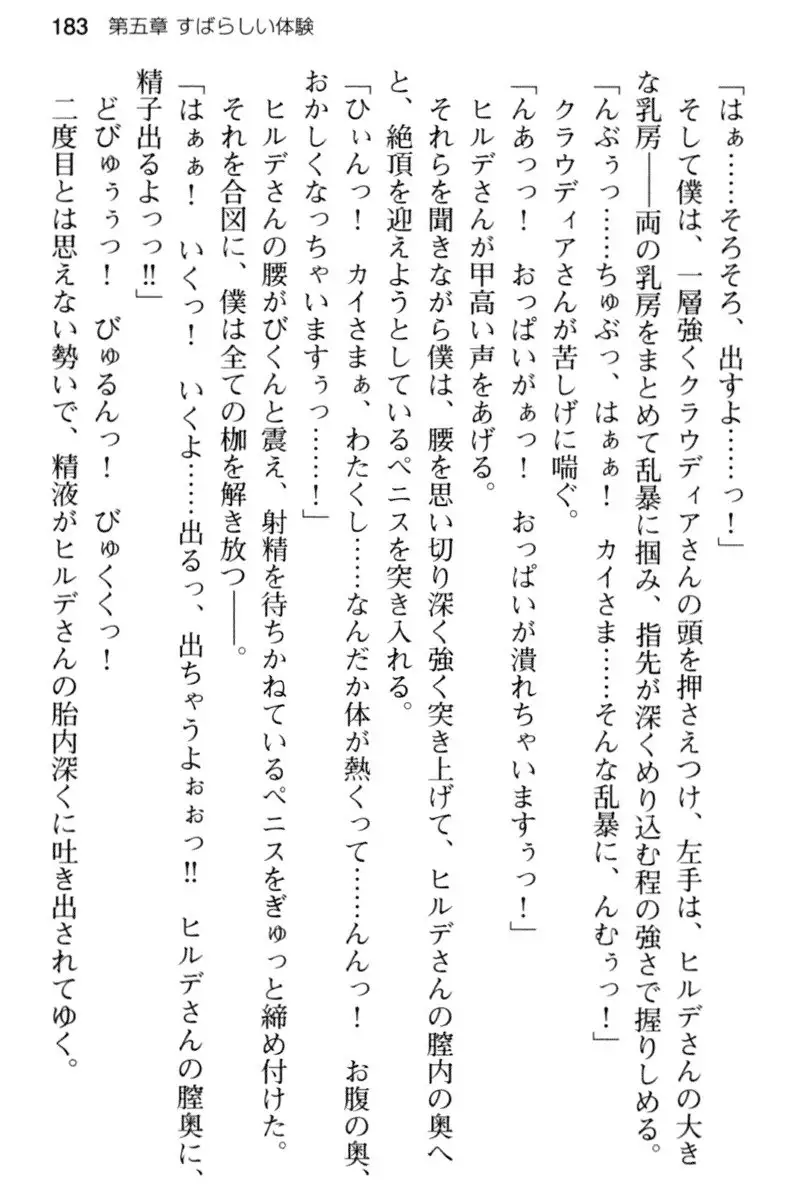 183 第五章 すばらしい体験
「はぁ……そろそろ、出すよ……っ！」
そして僕は、一層強くクラウディアさんの頭を押さえつけ、左手は、ヒルデさんの大き
な乳房――両の乳房をまとめて乱暴に掴み、指先が深くめり込む程の強さで握りしめる。
「んぶぅっ……ちゅぶっ、はぁぁ！　カイさま……そんな乱暴に、んむぅっ！」
クラウディアさんが苦しげに喘ぐ。
「んあっっ！　おっぱいがぁっ！　おっぱいが潰れちゃいますぅっ！」
ヒルデさんが甲高い声をあげる。
それらを聞きながら僕は、腰を思い切り深く強く突き上げて、ヒルデさんの膣内の奥へ
と、絶頂を迎えようとしているペニスを突き入れる。
「ひぃんっ！　カイさまぁ、わたくし……なんだか体が熱くって……んんっ！　お腹の奥、
おかしくなっちゃいますぅっ……！」
ヒルデさんの腰がびくんと震え、射精を待ちかねているペニスをぎゅっと締め付けた。
それを合図に、僕は全ての枷を解き放つ――。
「はぁぁ！　いくっ！　いくよ……出るっ、出ちゃうよぉぉっ‼　ヒルデさんの膣奥に、
精子出るよっっ‼」
どびゅぅぅっ！　びゅるんっ！　びゅくくっ！
二度目とは思えない勢いで、精液がヒルデさんの胎内深くに吐き出されてゆく。